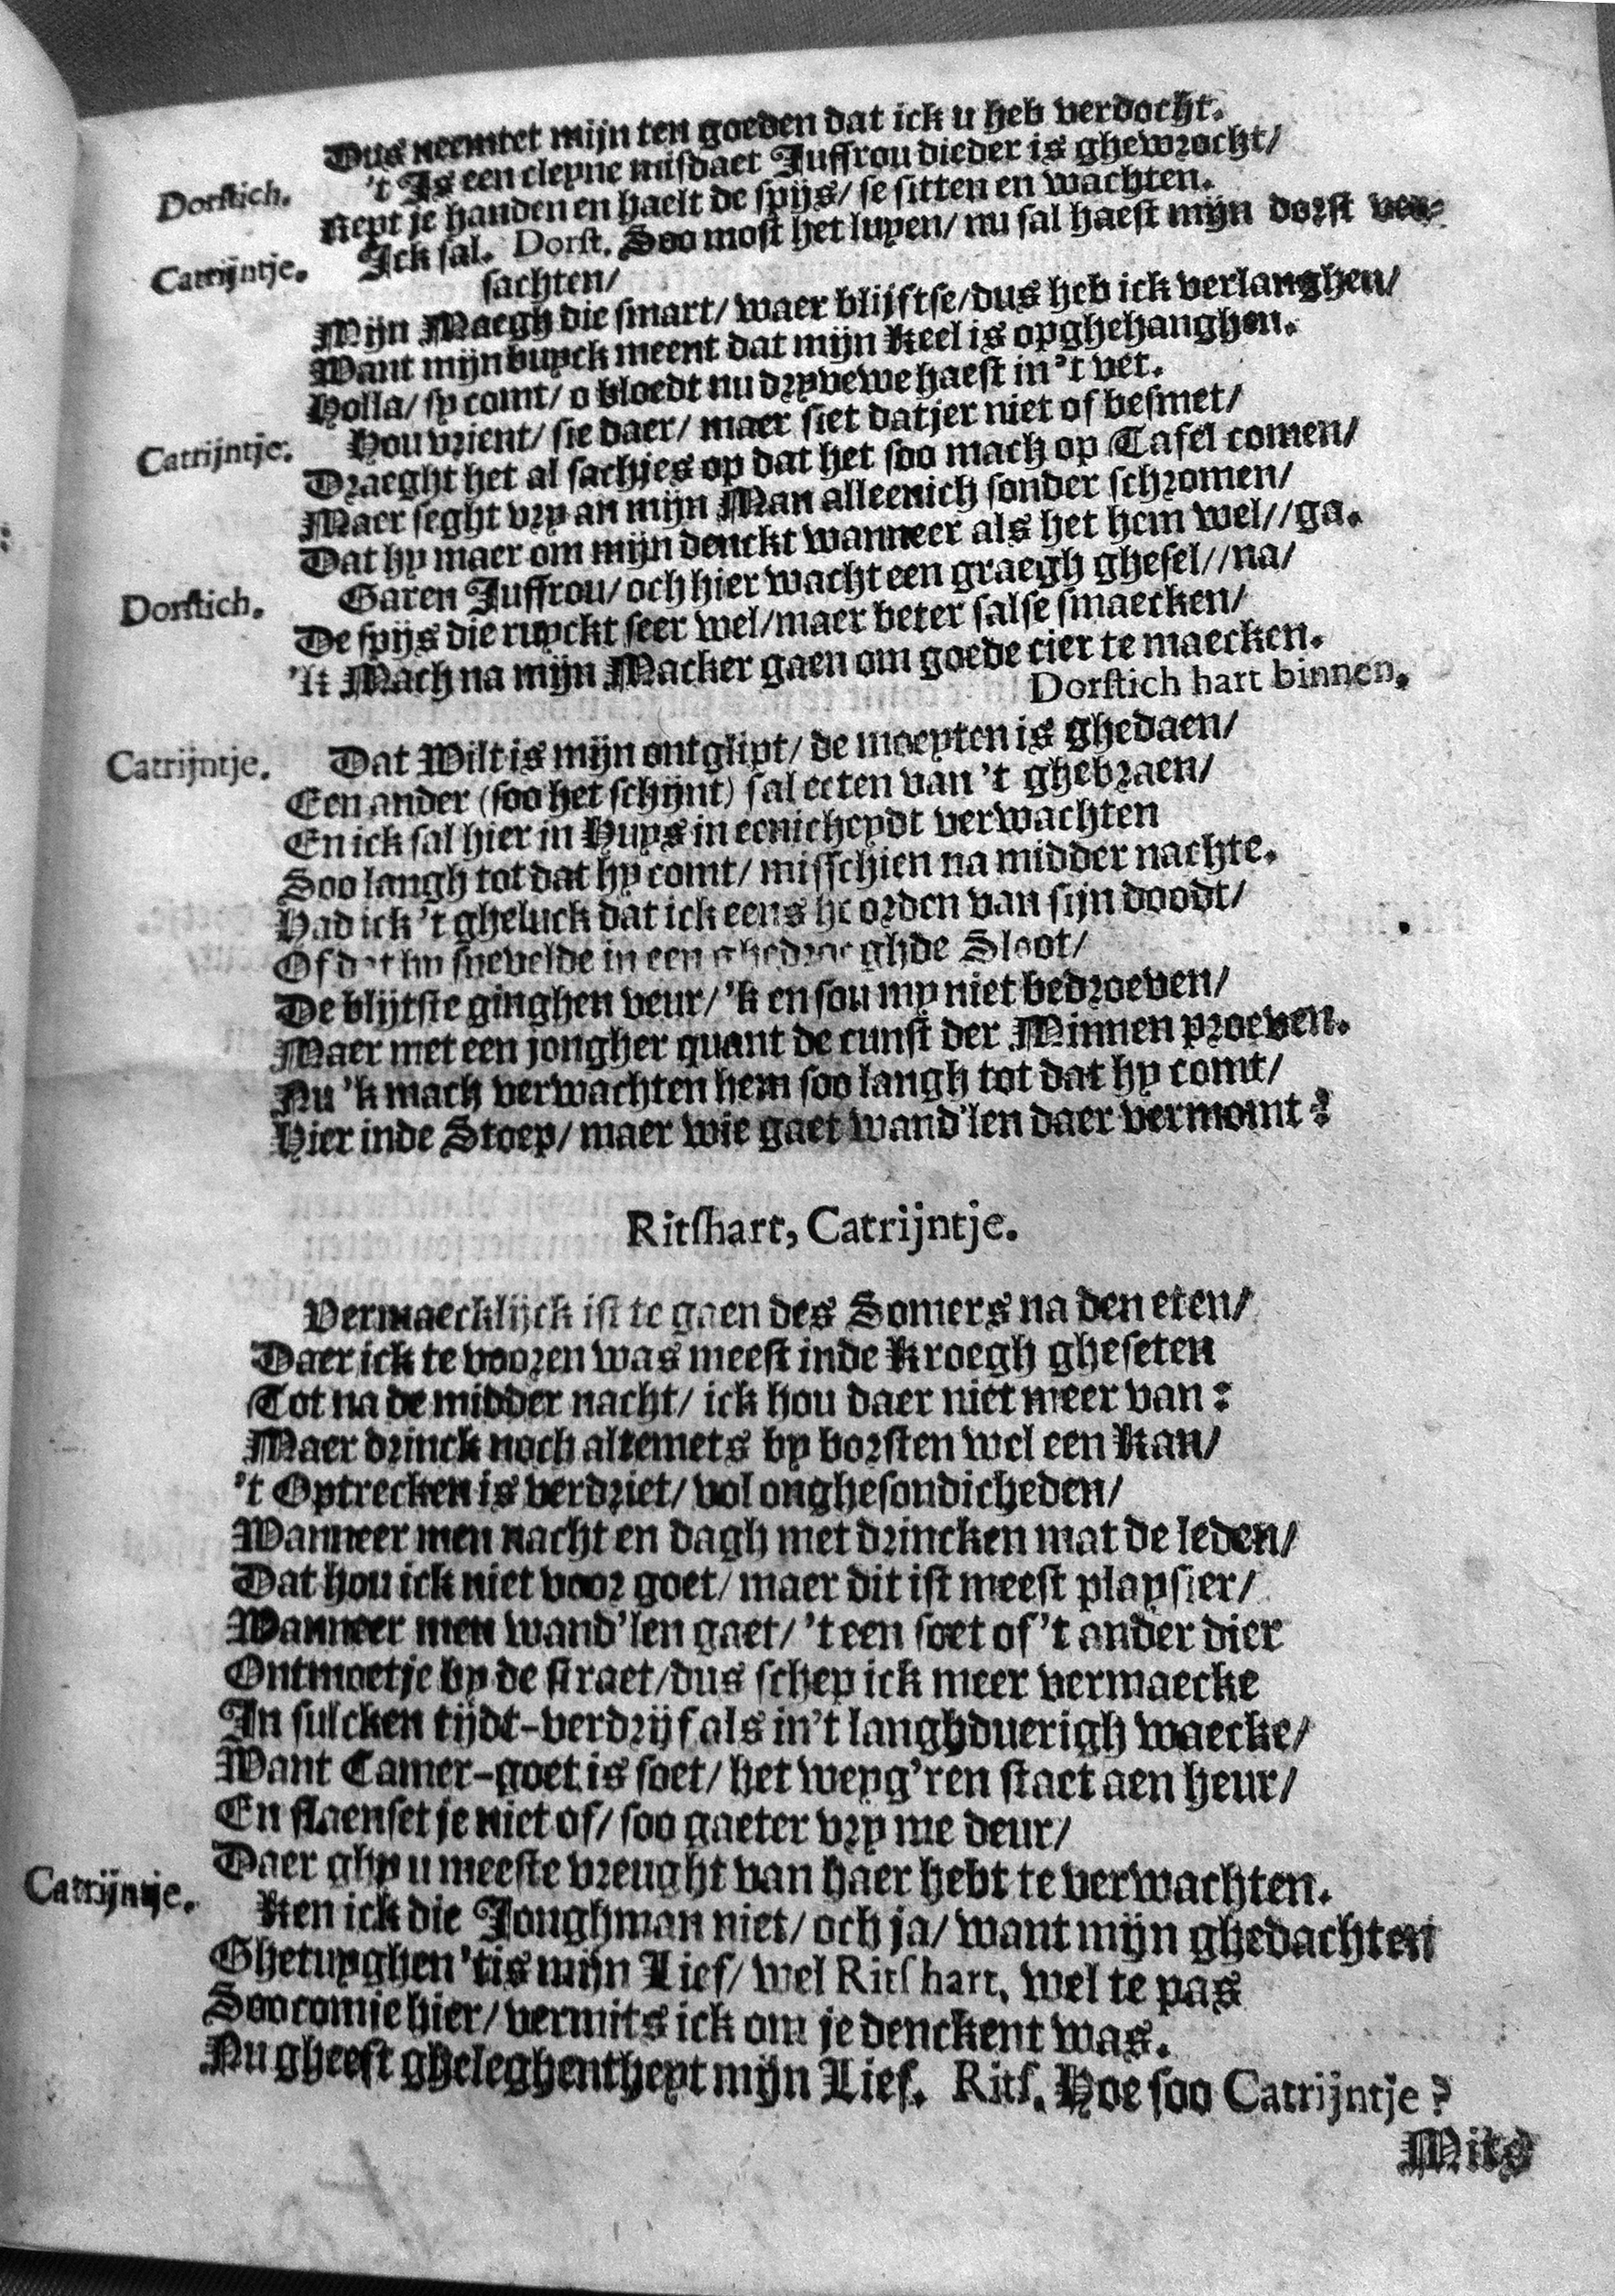 Dus neemtet mijn ten goeden dat ick u heb verdocht.
Dorstich. 't Is een cleyne misdaet Juffrou dieder is ghewrocht/
Rept je handen en haelt de spijs/ se sitten en wachten.
Catrijntje. Ick sal. Dorst. Soo most het luyen/ nu sal haest mijn dorst ver-
sachten/
Mijn Maegh die smart/ waer blijftse/ dus heb ick verlanghen/
Want mijn buyck meent dat mijn Keel is opghehanghen.
Holla/ sy comt/ o bloedt nu dryvewe haest in 't vet.
Catrijntje. Hou vrient/ sie daer/ maer siet datjer niet of besmet/
Draeght het al sachjes op dat het soo mach op Tafel comen/
Maer seght vry an mijn Man alleenich sonder schromen/
Dat hy maer om mijn denckt wanneer als het hem wel//ga.
Dorstich. Garen Juffrou/ och hier wacht een graegh ghesel//na/
De spijs die ruyckt seer wel/ maer beter salse smaecken/
'k Mach na mijn Macker gaen om goede cier te maecken.
Dorstich hart binnen.
Catrijntje. Dat Wilt is mijn ontglipt/ de moeyten is ghedaen/
Een ander (soo het schijnt) sal eeten van 't ghebraen/
En ick sal hier in Huys in eenicheydt verwachten
Soo langh tot dat hy comt/ misschien na midder nachte.
Had ick 't gheluck dat ick eens hoorden van sijn doodt/
Of dat hy snevelde in een ghedroeghde Sloot/
De blijtste ginghen veur/ 'k en sou my niet bedroeven/
Maer met een jongher quant de cunst der Minnen proeven.
Nu 'k mach verwachten hem soo langh tot dat hy comt/
Hier inde Stoep/ maer wie gaet wand'len daer vermomt?
Ritshart, Catrijntje.
Vermaecklijck ist te gaen des Somers na den eten/
Daer ick te vooren was meest inde Kroegh gheseten
Tot na de midder nacht/ ick hou daer niet meer van:
Maer drinck noch altemets by borsten wel een Kan/
't Optrecken is verdriet/ vol onghesondicheden/
Wanneer men nacht en dagh met drincken mat de leden/
Dat hou ick niet voor goet/ maer dit ist meest playsier/
Wanneer men wand'len gaet/ 't een soet of 't ander dier
Ontmoetje by de straet/ dus schep ick meer vermaecke
In sulcken tijdt-verdrijf als in't langhduerigh waecke/
Want Camer-goet is soet/ het weyg'ren staet aen heur/
En slaenset je niet of/ soo gaeter vry me deur/
Daer ghy u meeste vreught van haer hebt te verwachten.
Catrijntje. Ken ick die Jonghman niet/ och ja/ want mijn ghedachten
Ghetuyghen 'tis mijn Lief/ wel Ritshart, wel te pas
Soo comje hier/ vermits ick om je denckent was.
Nu gheeft gheleghentheyt mijn Lief. Rits. Hoe soo Catrijntje?
Mits